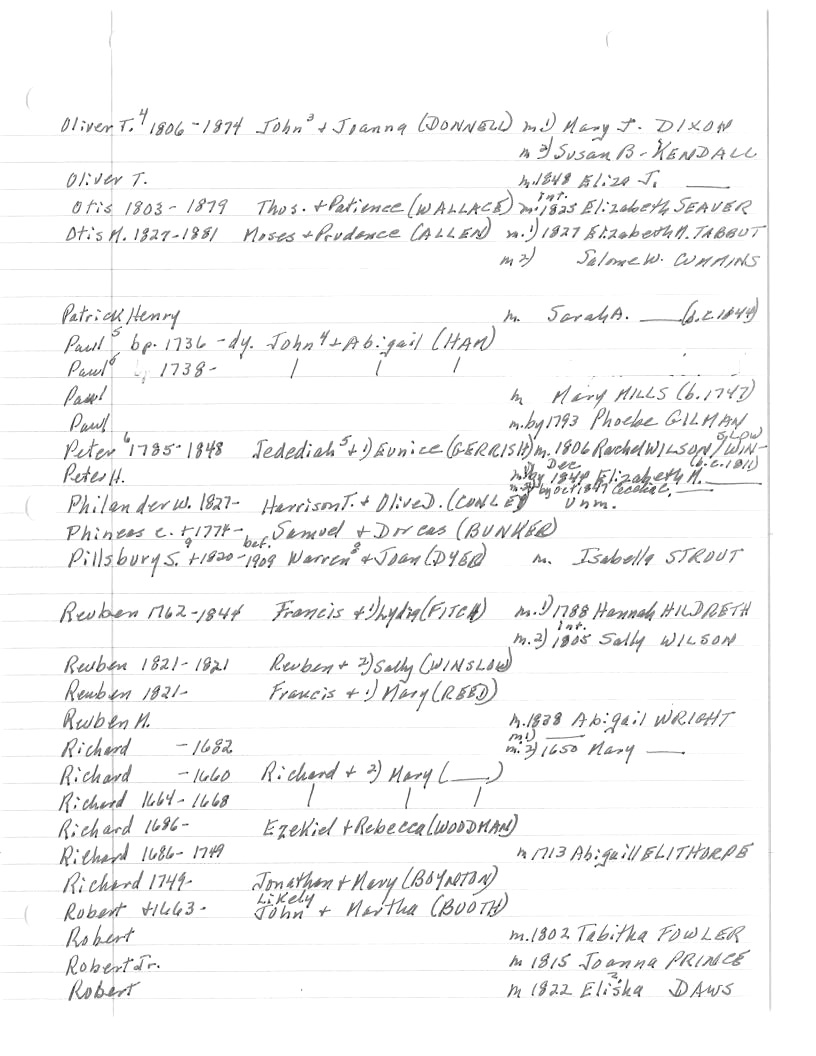 Oliver T.⁴ 1806 - 1874 John³ + Joanna (DONNELL) m 1) Mary J. DIXON
m 2) Susan B. KENDALL
Oliver T. m.1848 Eliza J. ____
Int.
Otis 1803 - 1879 Thos. + Patience (WALLACE) m.1825 Elizabeth SEAVER
Otis M. 1827-1881 Moses + Prudence (ALLEN) m.1) 1827 Elizabeth M. TABBUT
m 2) Salome W. CUMMINS
Patrick Henry m. Sarah A. ____ (b.c.1844)
Paul⁵ bp. 1736 - dy. John⁴ + Abigail (HAM)
Paul⁶ 1738- | | |
Paul m Mary MILLS (b.1747)
Paul m.by 1793 Phoebe GILMAN
Peter⁶ 1785-1848 Jedediah⁵ + 1) Eunice (GERRISH) m.1806 Rachel WILSON / WIN-
SLOW
Dec (b.c.1811)
Peter H. m. by 1844 Elizabeth M. ____
by Oct 1847 Cecelia C. ____
Philander W. 1827- Harrison T. + Olive D. (CONLEY) Unm.
Phineas C. +1774- Samuel + Dorcas (BUNKER)
bef.
Pillsbury S.⁹ +1820-1909 Warren⁸ + Joan (DYER) m. Isabella STROUT
Reuben 1762-1844 Francis + 1) Lydia (FITCH) m.1) 1788 Hannah HILDRETH
Int.
m.2) 1805 Sally WILSON
Reuben 1821-1821 Reuben + 2) Sally (WINSLOW)
Reuben 1821- Francis + 1) Mary (REED)
Reuben M. m.1838 Abigail WRIGHT
m1) ____
Richard -1682 m.2) 1650 Mary ____
Richard -1660 Richard + 2) Mary (____)
Richard 1664-1668 | | |
Richard 1686- Ezekiel + Rebecca (WOODMAN)
Richard 1686-1749 m 1713 Abigaill ELITHORPE
Richard 1749- Jonathan + Mary (BOYNTON)
Likely
Robert +1663- John + Martha (BOOTH)
Robert m.1802 Tabitha FOWLER
Robert Jr. m 1815 Joanna PRINCE
Robert m 1822 Elisha? DAWS